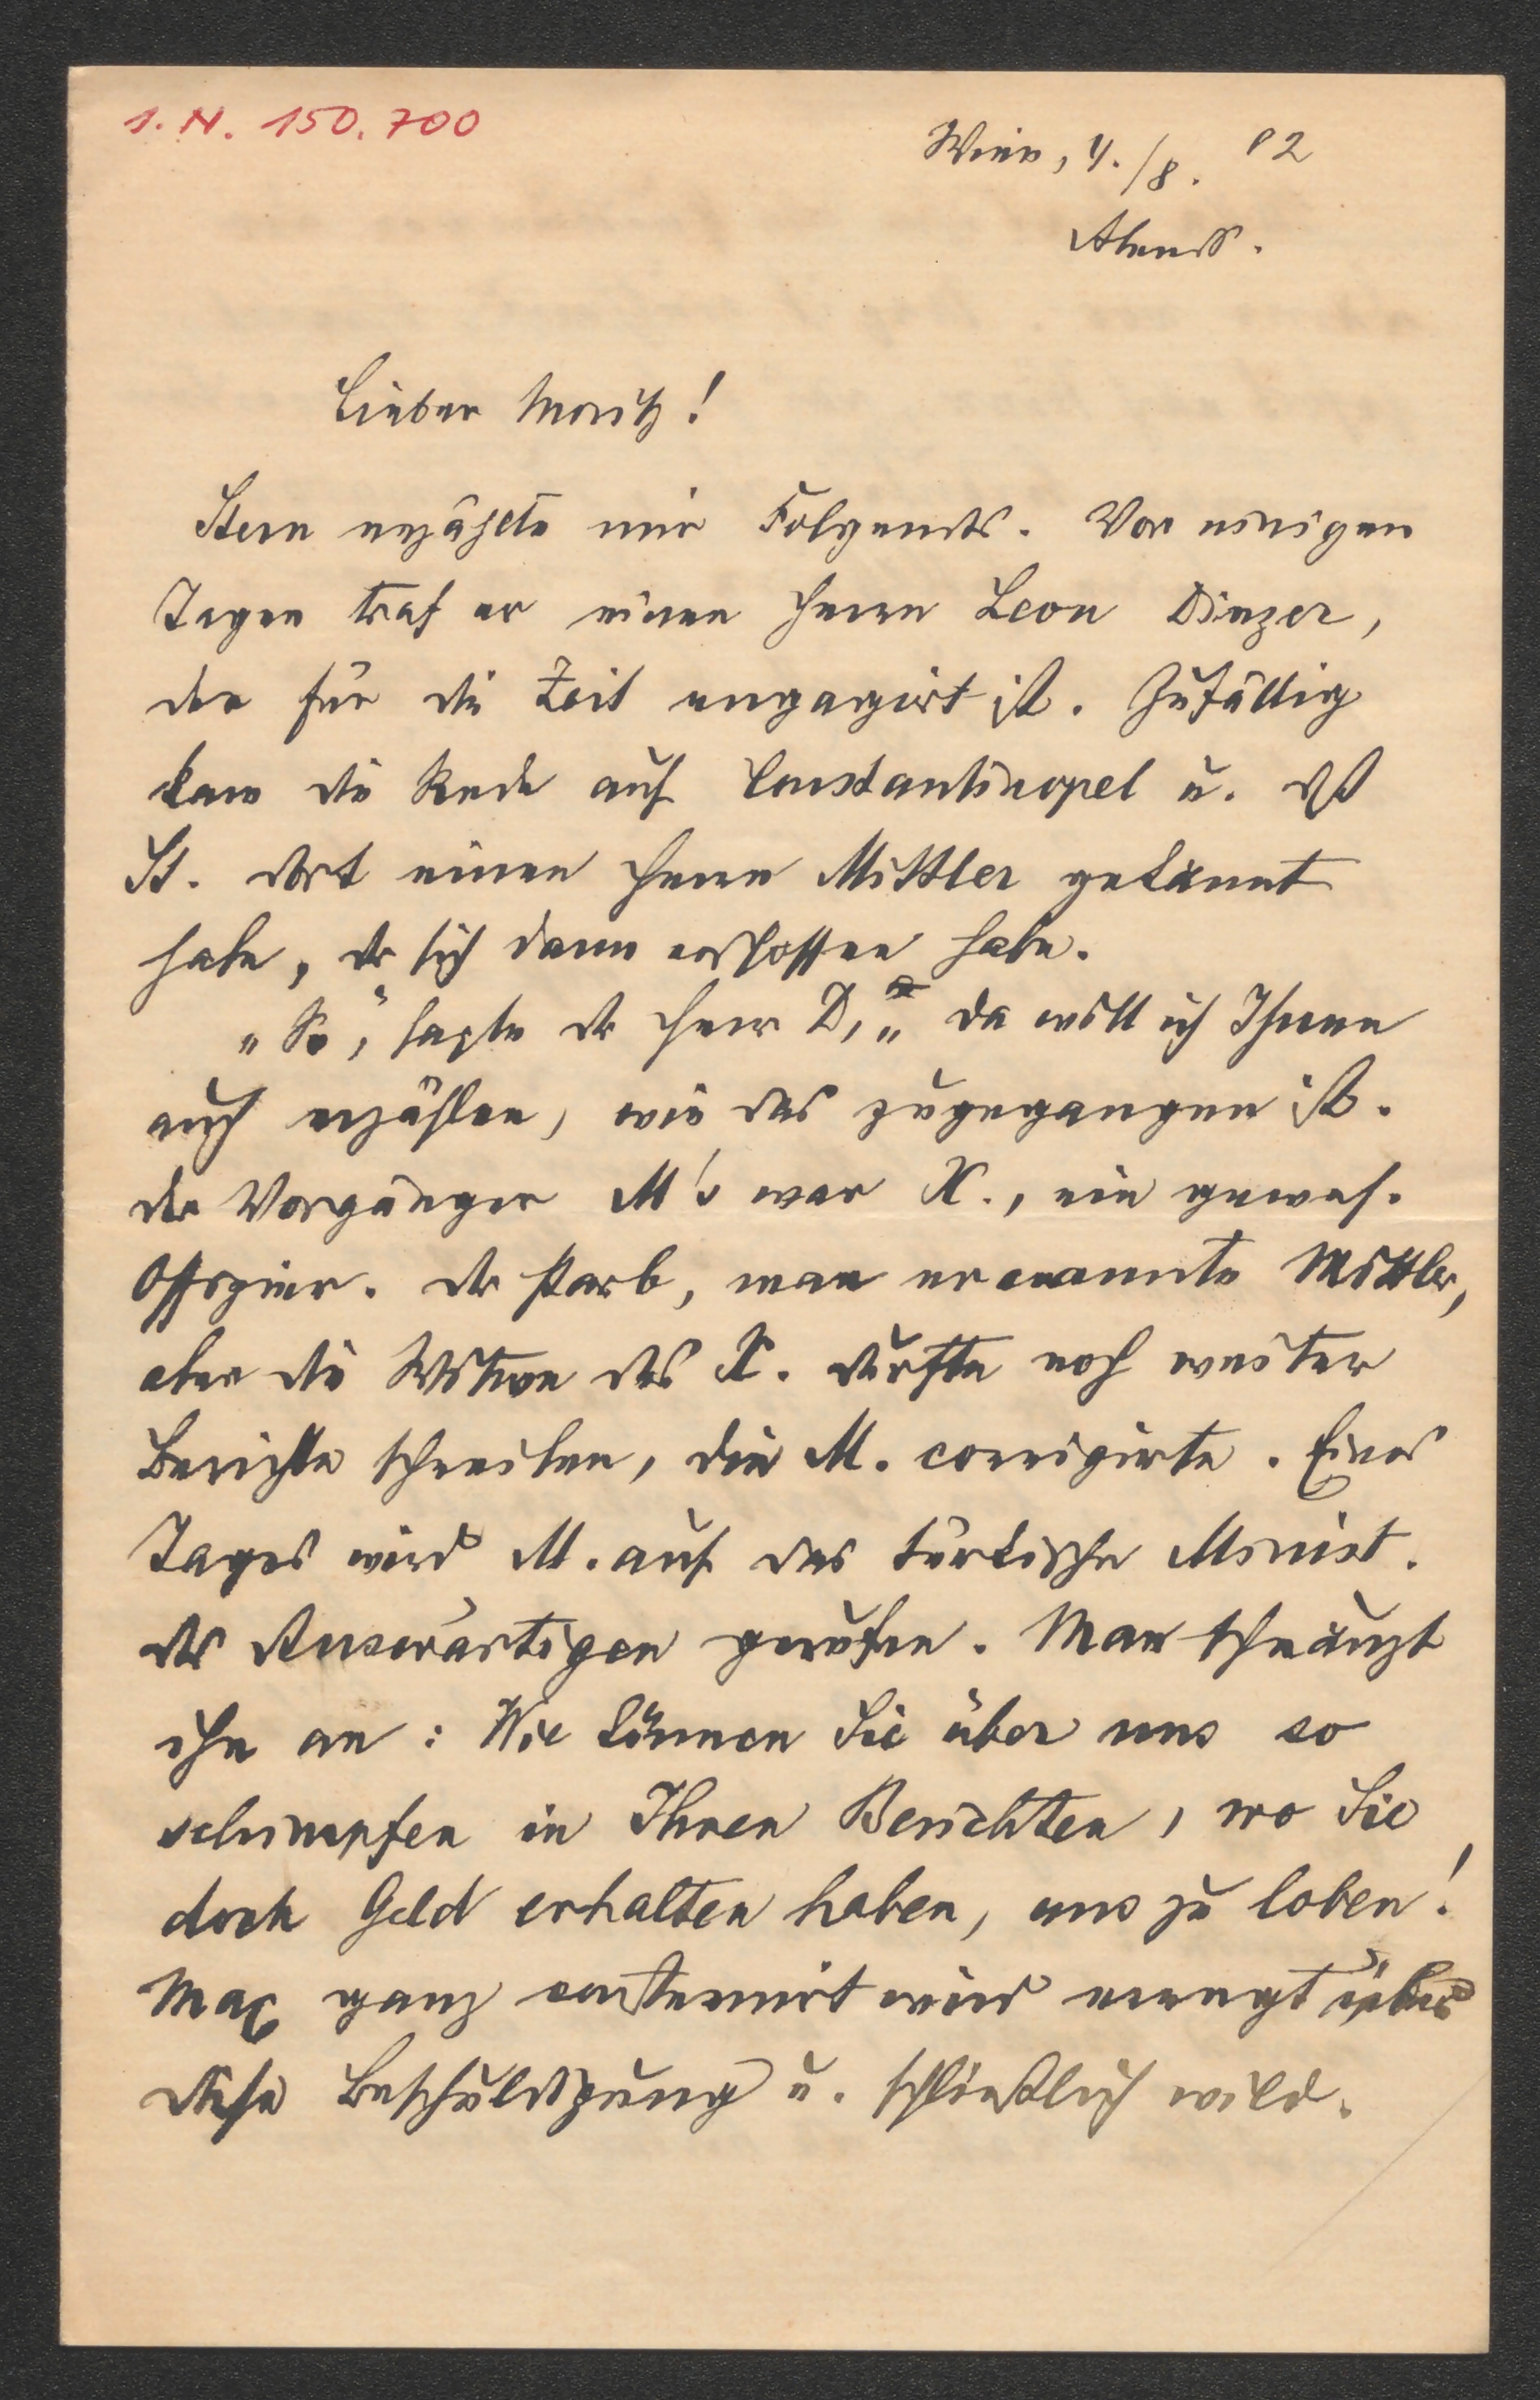 I. N. 150.700
Wien, 4./8. 02
Abends.
Lieber Moritz!
Stern erzählte mir Folgendes. Vor einigen
Tagen traf er einen Herrn Leon Dinzer,
der für die Zeit engagirt ist. Zufällig
kam die Rede auf Constantinopel u. dß
St. dort einen Herrn Mittler gekannt
habe, der sich dann erschossen habe.
"So," sagte der Herr D., " da will ich Ihnen
auch erzählen, wie das zugegangen ist.
der Vorgänger M's war X., ein gewes.
Offizier. der starb, man ernannte Mittler,
aber die Witwe des X. durfte noch weiter
Berichte schreiben, die M. corrigirte. Eines
Tages wird M. auf das türkische Minist.
des Auswärtigen gerufen. Man schnäuzt
ihn an: Wie können Sie über uns so
schimpfen in Ihren Berichten, wo Sie
doch Geld erhalten haben, uns zu loben!
Max ganz consternirt wird erregt über
diese Beschuldigung u. schließlich wild.